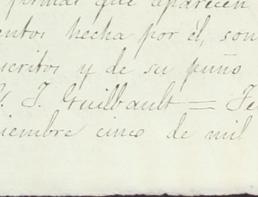 firmas que aparecen
entos hecha por él, son
scritos y de su puño
J. Guilbault = Fe
iembre cinco de mil